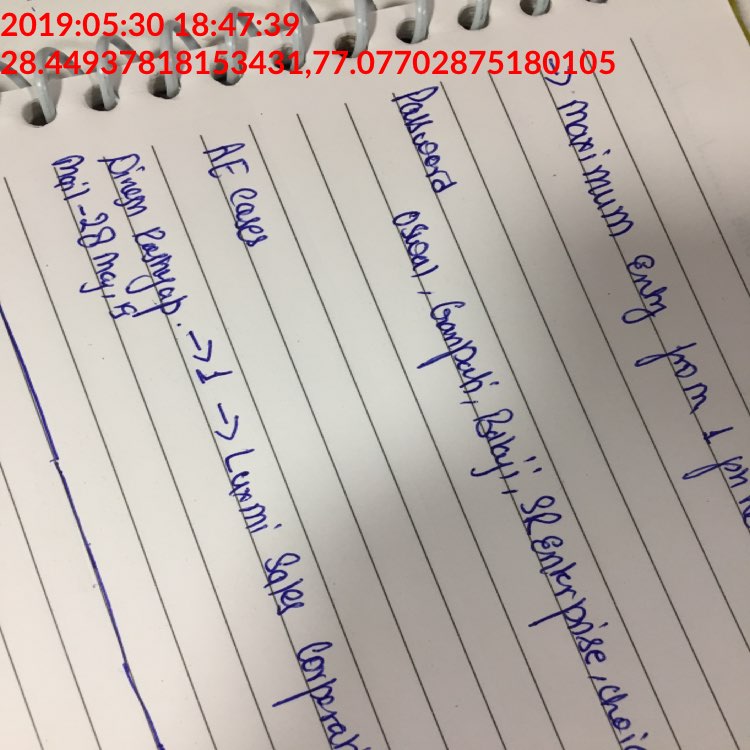 2019:05:30 18:47:39
28.44937818153431,77.07702875180105
-> maximum entry from 1 ph
Password oswal, Ganpati, Balaji, SR Enterprise, choi
AE cases
-> 1 -> Laxmi Sales Corporati
Mail - 28 may, 19